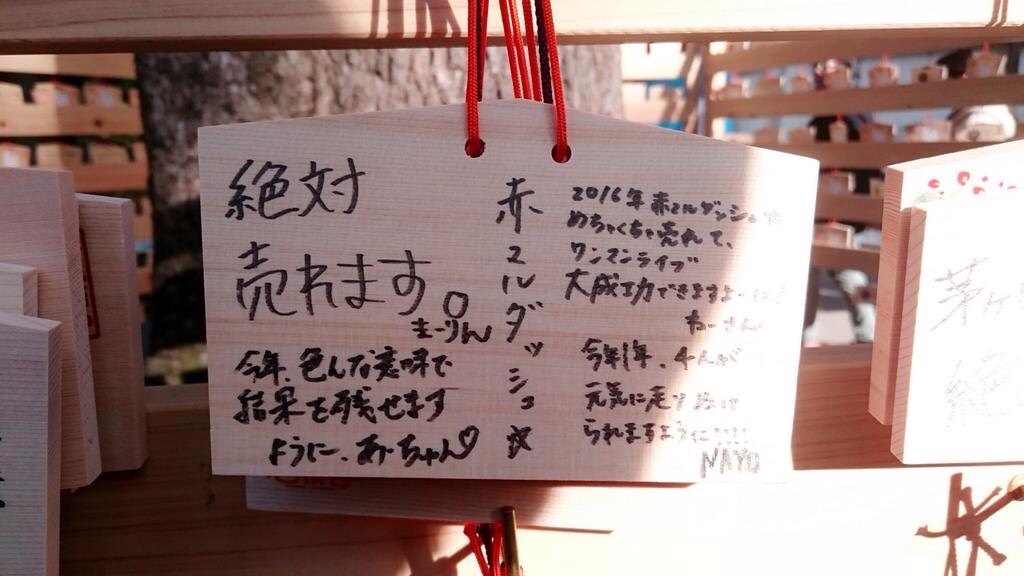 絶対
売れます。
まーりん
今年、色んな意味で
結果を残せます
ように、あーちゃん♡
赤マルダッシュ☆
2016年赤マルダッシュ☆
めちゃくちゃ売れて、
ワンマンライブ
大成功できますよーに!
ねーさん
今年1年、4人が
元気に走り続け
られますように!!!
NAYU
茅ヶ
絶